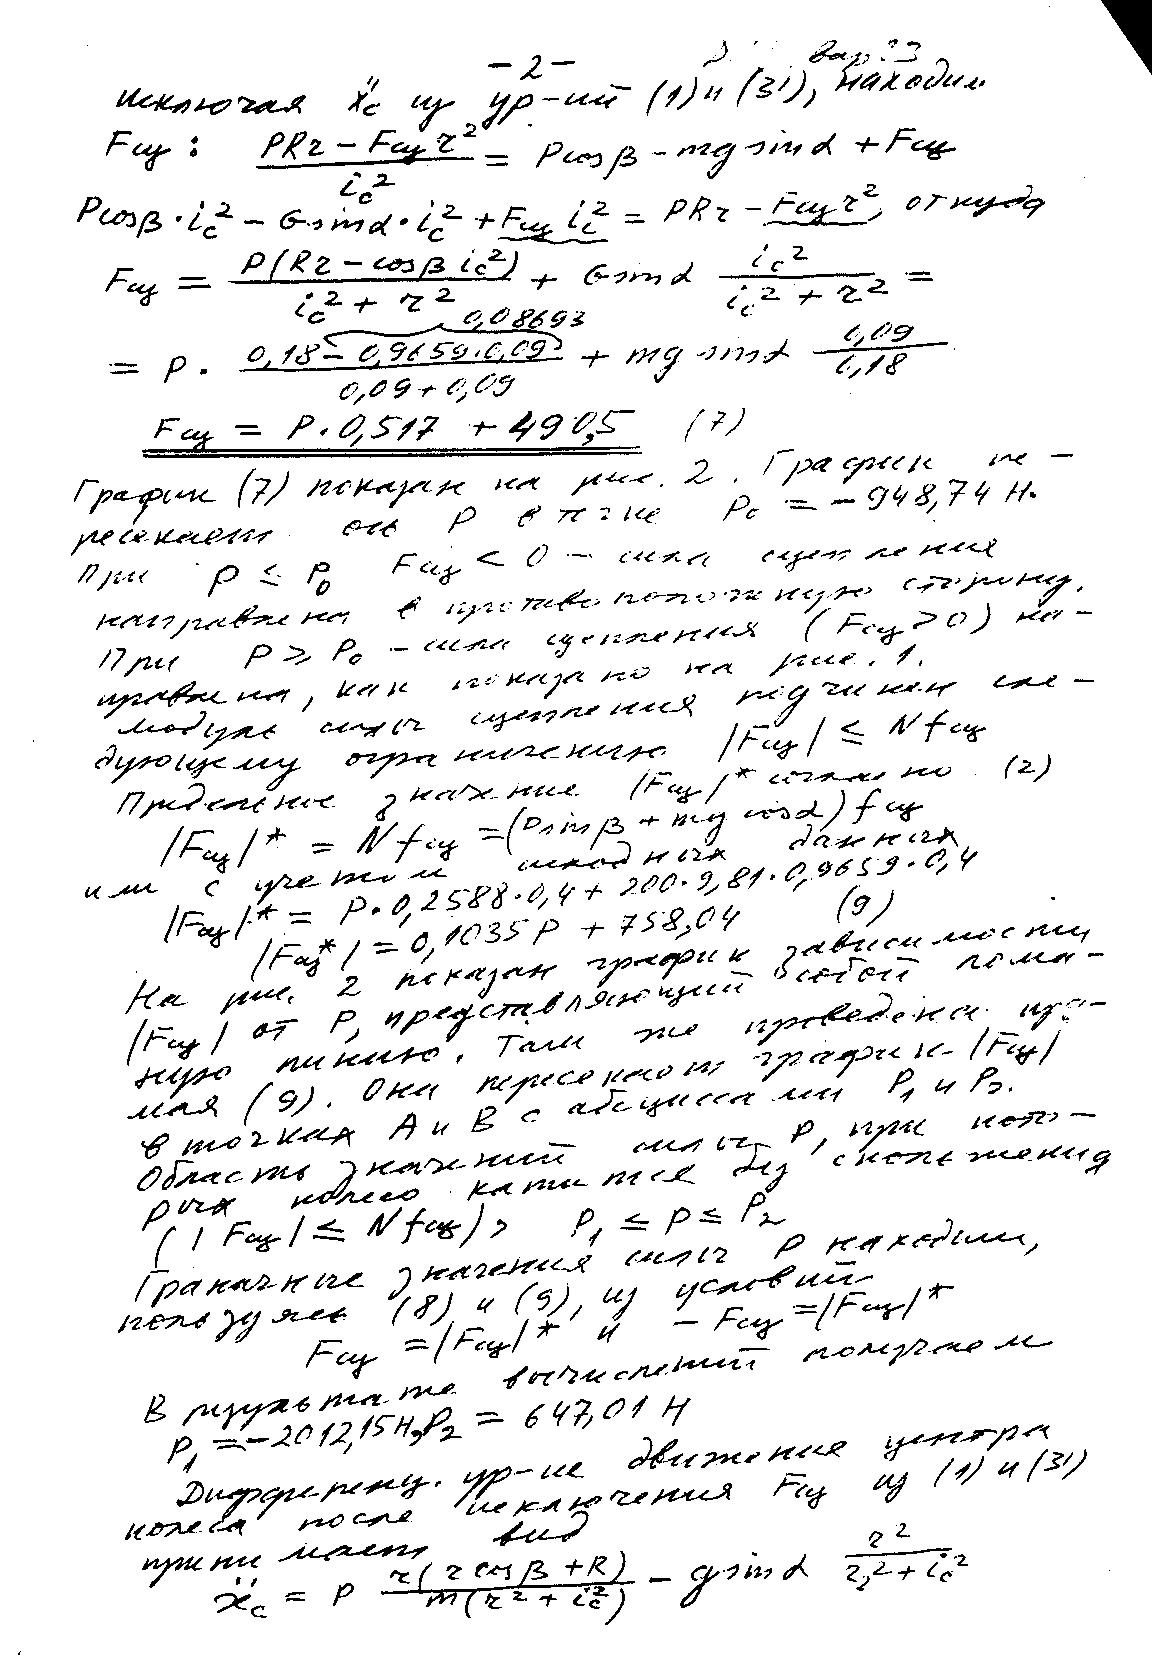 - 2 -
вар. 23
исключая ẍc из ур-ий (1) и (3'), находим
Fсц : (PRr − Fсц r²)/ic² = Pcosβ − mg sinα + Fсц
Pcosβ·ic² − G sinα·ic² + Fсц ic² = PRr − Fсц r², откуда
Fсц = P(Rr − cosβ ic²)/(ic² + r²) + G sinα ic²/(ic² + r²) =
0,08693
= P · (0,18 − 0,9659·0,09)/(0,09 + 0,09) + mg sinα 0,09/0,18
Fсц = P·0,517 + 490,5 (7)
График (7) показан на рис. 2. График пе-
ресекает ось P в точке P₀ = −948,74 Н.
При P ≤ P₀ Fсц < 0 − сила сцепления
направлена в противоположную сторону.
При P ≥ P₀ − сила сцепления (Fсц > 0) на-
правлена, как показано на рис. 1.
Модуль силы сцепления подчинен сле-
дующему ограничению |Fсц| ≤ N fсц
Предельное значение |Fсц|* согласно (2)
|Fсц|* = N fсц = (Psinβ + mg cosα) fсц
или с учетом исходных данных
|Fсц|* = P·0,2588·0,4 + 200·9,81·0,9659·0,4
|Fсц*| = 0,1035P + 758,04 (9)
На рис. 2 показан график зависимости
|Fсц| от P, представляющий собой лома-
ную линию. Там же проведена пря-
мая (9). Она пересекает график |Fсц|
в точках A и B с абсциссами P₁ и P₂.
Область значений силы P, при кото-
рых колесо катится без скольжения
(|Fсц| ≤ N fсц), P₁ ≤ P ≤ P₂
Граничные значения силы P находим,
пользуясь (8) и (9), из условий
Fсц = |Fсц|* и − Fсц = |Fсц|*
В результате вычислений получаем
P₁ = −2012,15 Н, P₂ = 647,01 Н
Дифференц. ур-ие движения центра
колеса после исключения Fсц из (1) и (3')
принимает вид
ẍc = P r(r cosβ + R)/(m(r² + ic²)) − g sinα r²/(r² + ic²)